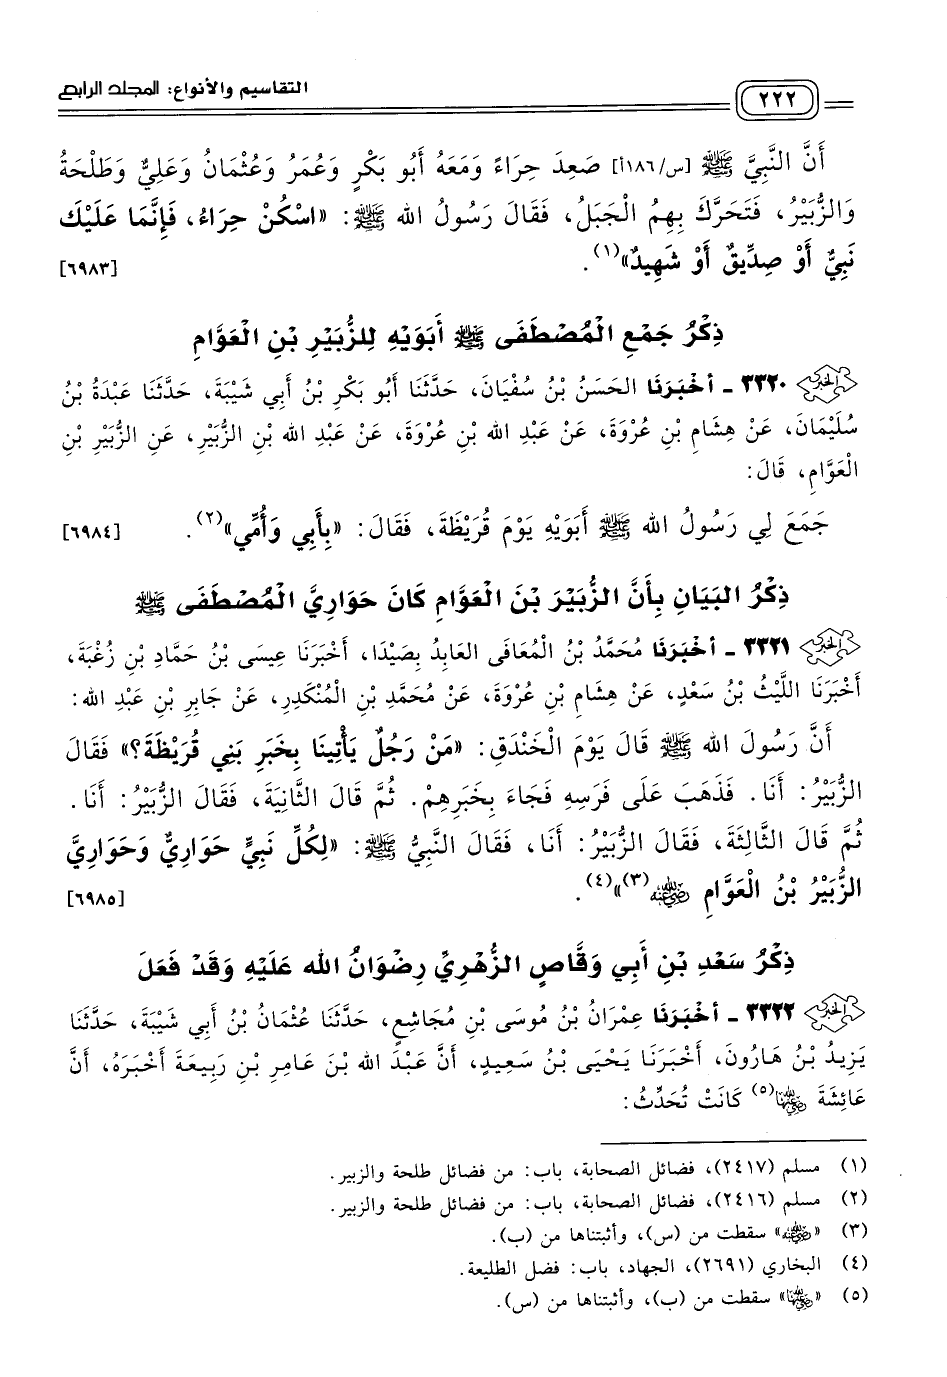 ٢٢٢ التقاسيم والأنواع: المجلد الرابع
أَنَّ النَّبِيَّ ﷺ [س/١٨٦أ] صَعِدَ حِرَاءً وَمَعَهُ أَبُو بَكْرٍ وَعُمَرُ وَعُثْمَانُ وَعَلِيٌّ وَطَلْحَةُ
وَالزُّبَيْرُ، فَتَحَرَّكَ بِهِمُ الْجَبَلُ، فَقَالَ رَسُولُ الله ﷺ: «اسْكُنْ حِرَاءُ، فَإِنَّمَا عَلَيْكَ
نَبِيٌّ أَوْ صِدِّيقٌ أَوْ شَهِيدٌ»(١). [٦٩٨٣]
ذِكْرُ جَمْعِ الْمُصْطَفَى ﷺ أَبَوَيْهِ لِلزُّبَيْرِ بْنِ الْعَوَّامِ
٣٣٢٠ ـ أخْبَرَنَا الحَسَنُ بْنُ سُفْيَانَ، حَدَّثَنَا أَبُو بَكْرِ بْنُ أَبِي شَيْبَةَ، حَدَّثَنَا عَبْدَةُ بْنُ
سُلَيْمَانَ، عَنْ هِشَامِ بْنِ عُرْوَةَ، عَنْ عَبْدِ الله بْنِ عُرْوَةَ، عَنْ عَبْدِ الله بْنِ الزُّبَيْرِ، عَنِ الزُّبَيْرِ بْنِ
الْعَوَّامِ، قَالَ:
جَمَعَ لِي رَسُولُ الله ﷺ أَبَوَيْهِ يَوْمَ قُرَيْظَةَ، فَقَالَ: «بِأَبِي وَأُمِّي»(٢). [٦٩٨٤]
ذِكْرُ البَيَانِ بِأَنَّ الزُّبَيْرَ بْنَ الْعَوَّامِ كَانَ حَوَارِيَّ الْمُصْطَفَى ﷺ
٣٣٢١ ـ أخْبَرَنَا مُحَمَّدُ بْنُ الْمُعَافَى العَابِدُ بِصَيْدَا، أَخْبَرَنَا عِيسَى بْنُ حَمَّادِ بْنِ زُغْبَةَ،
أَخْبَرَنَا اللَّيْثُ بْنُ سَعْدٍ، عَنْ هِشَامِ بْنِ عُرْوَةَ، عَنْ مُحَمَّدِ بْنِ الْمُنْكَدِرِ، عَنْ جَابِرِ بْنِ عَبْدِ الله:
أَنَّ رَسُولَ الله ﷺ قَالَ يَوْمَ الْخَنْدَقِ: «مَنْ رَجُلٌ يَأْتِينَا بِخَبَرِ بَنِي قُرَيْظَةَ؟» فَقَالَ
الزُّبَيْرُ: أَنَا. فَذَهَبَ عَلَى فَرَسِهِ فَجَاءَ بِخَبَرِهِمْ. ثُمَّ قَالَ الثَّانِيَةَ، فَقَالَ الزُّبَيْرُ: أَنَا.
ثُمَّ قَالَ الثَّالِثَةَ، فَقَالَ الزُّبَيْرُ: أَنَا، فَقَالَ النَّبِيُّ ﷺ: «لِكُلِّ نَبِيٍّ حَوَارِيٌّ وَحَوَارِيَّ
الزُّبَيْرُ بْنُ الْعَوَّامِ رضي الله عنه(٣)»(٤). [٦٩٨٥]
ذِكْرُ سَعْدِ بْنِ أَبِي وَقَّاصٍ الزُّهْرِيِّ رِضْوَانُ الله عَلَيْهِ وَقَدْ فَعَلَ
٣٣٢٢ ـ أخْبَرَنَا عِمْرَانُ بْنُ مُوسَى بْنِ مُجَاشِعٍ، حَدَّثَنَا عُثْمَانُ بْنُ أَبِي شَيْبَةَ، حَدَّثَنَا
يَزِيدُ بْنُ هَارُونَ، أَخْبَرَنَا يَحْيَى بْنُ سَعِيدٍ، أَنَّ عَبْدَ الله بْنَ عَامِرِ بْنِ رَبِيعَةَ أَخْبَرَهُ، أَنَّ
عَائِشَةَ رضي الله عنها(٥) كَانَتْ تُحَدِّثُ:
(١) مسلم (٢٤١٧)، فضائل الصحابة، باب: من فضائل طلحة والزبير.
(٢) مسلم (٢٤١٦)، فضائل الصحابة، باب: من فضائل طلحة والزبير.
(٣) «رضي الله عنه» سقطت من (س)، وأثبتناها من (ب).
(٤) البخاري (٢٦٩١)، الجهاد، باب: فضل الطليعة.
(٥) «رضي الله عنها» سقطت من (ب)، وأثبتناها من (س).